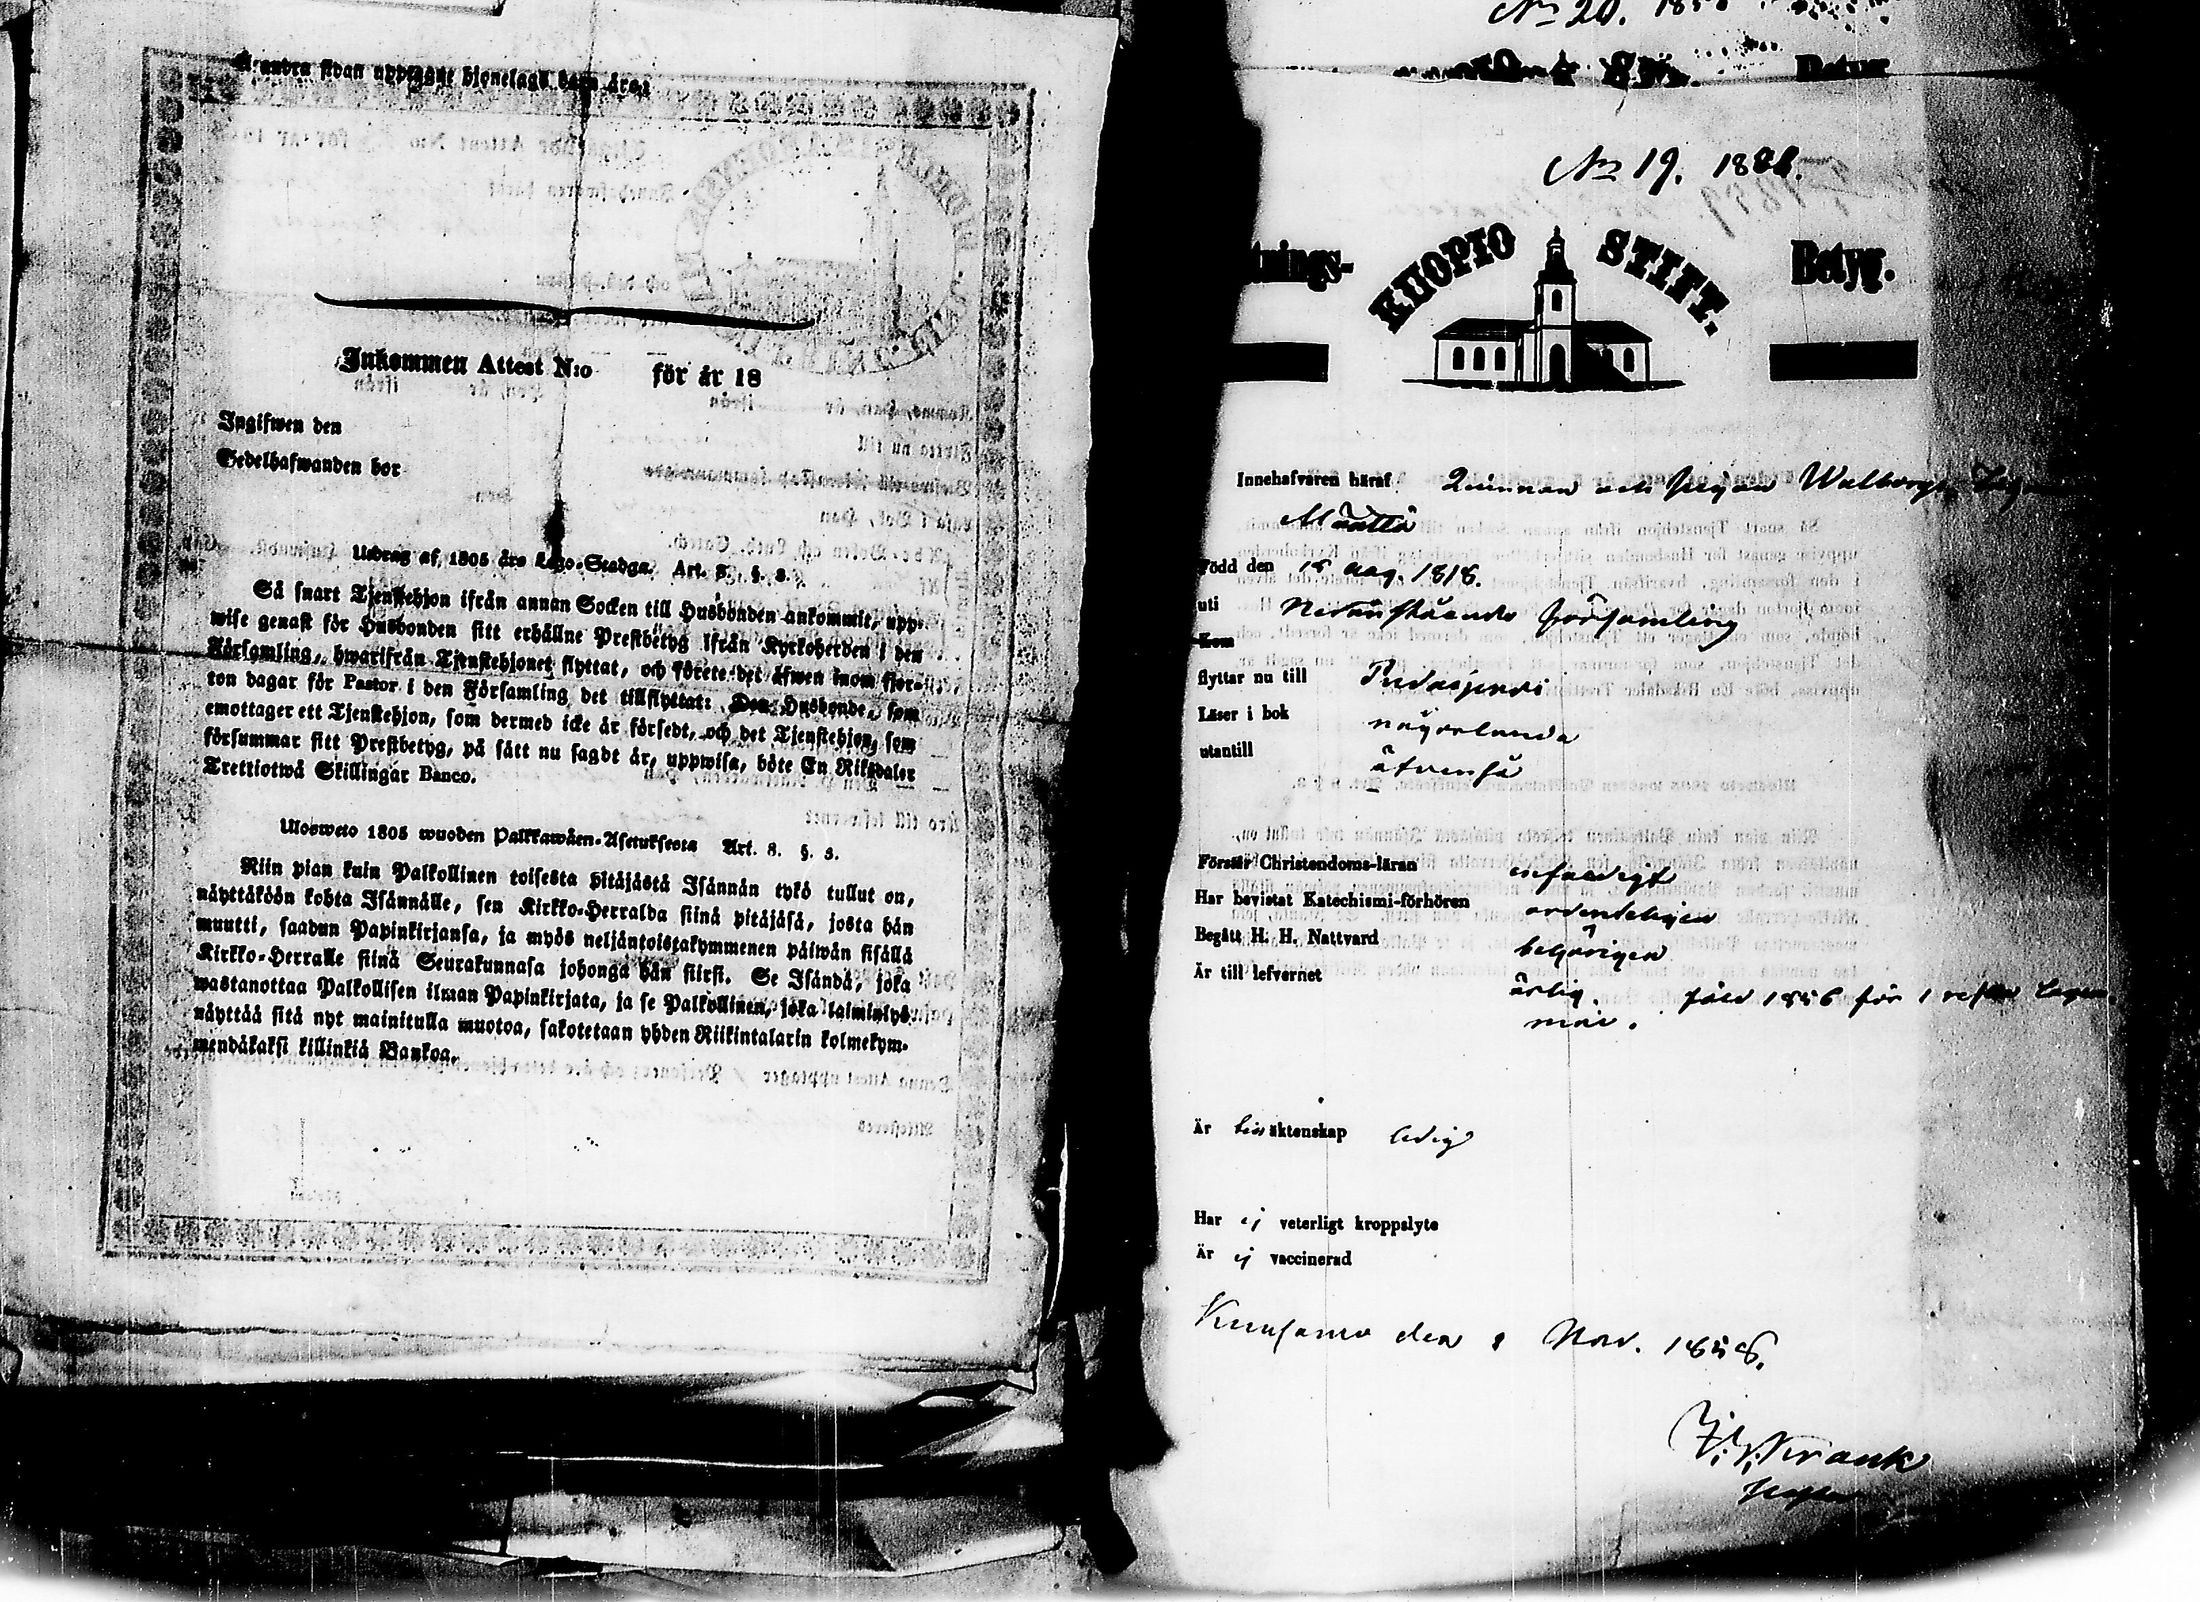 å andra sidan upptagne hjonelags barn äro:
Inkommen Attest N:o för år 18
Ingifwen den
Sedelhafwanden bor
Utdrag af 1805 års Lego-Stadga. Art. 8. §. 3.
Så snart Tjenstehjon ifrån annan Socken till Husbonden ankommit, upp-
wise genast för Husbonden sitt erhållne Prestbetyg ifrån Kyrkoherden i den
Församling, hwarifrån Tjenstehjonet flyttat, och förete det äfwen inom fjor-
ton dagar för Pastor i den Församling det tillflyttat: Den Husbonde, som
emottager ett Tjenstehjon, som dermed icke är försedt, och det Tjenstehjon, som
försummar sitt Prestbetyg, på sätt nu sagdt är, uppwisa, böte En Riksdaler
Trettiotwå Skillingar Banco.
Ulosweto 1805 wuoden Palkkawäen-Asetuksesta Art. 8. §. 3.
Niin pian kuin Palkollinen toisesta pitäjästä Isännän tykö tullut on,
näyttäköön kohta Isännälle, sen Kirkko-Herralda siinä pitäjäsä, josta hän
muutti, saadun Papinkirjansa, ja myös neljäntoistakymmenen päiwän sisällä
Kirkko-Herralle siinä Seurakunnasa johonga hän siirsi. Se Isändä, joka
wastanottaa Palkollisen ilman Papinkirjata, ja se Palkollinen, joka laiminlyö
näyttää sitä nyt mainitulla muotoa, sakotetaan yhden Riikintalarin kolmekym-
mendäkaksi killinkiä Bankoa.
N:o 20.
Betyg
N:o 19. 1858.
tnings- KUOPIO STIFT. Betyg.
Innehafvaren häraf Qvinnan och pigan Walborg
Määttä
Född den 18 Aug. 1818.
uti nedanstående församling
Kom
flyttar nu till Pudasjervi
Läser i bok någorlunda
utantill äfvenså
Förstår Christendoms-läran enfaldigt
Har bevistat Katechismi-förhören ordentligen
Begått H. H. Nattvard behörigen
Är till lefvernet ärlig. född 1856 för 1 resan
mål.
Är till äktenskap ledig
Har ej veterligt kroppslyte
Är ej vaccinerad
Kuusamo den 8 Nov. 1858.
Krank
Pastor